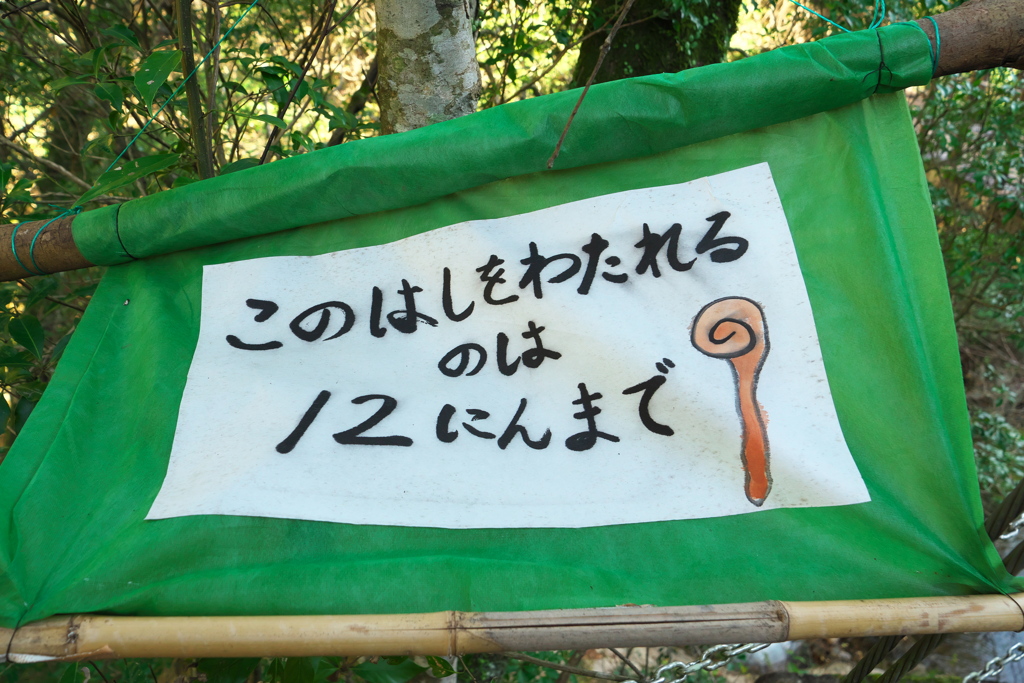 このはしをわたれる
のは
12にんまで